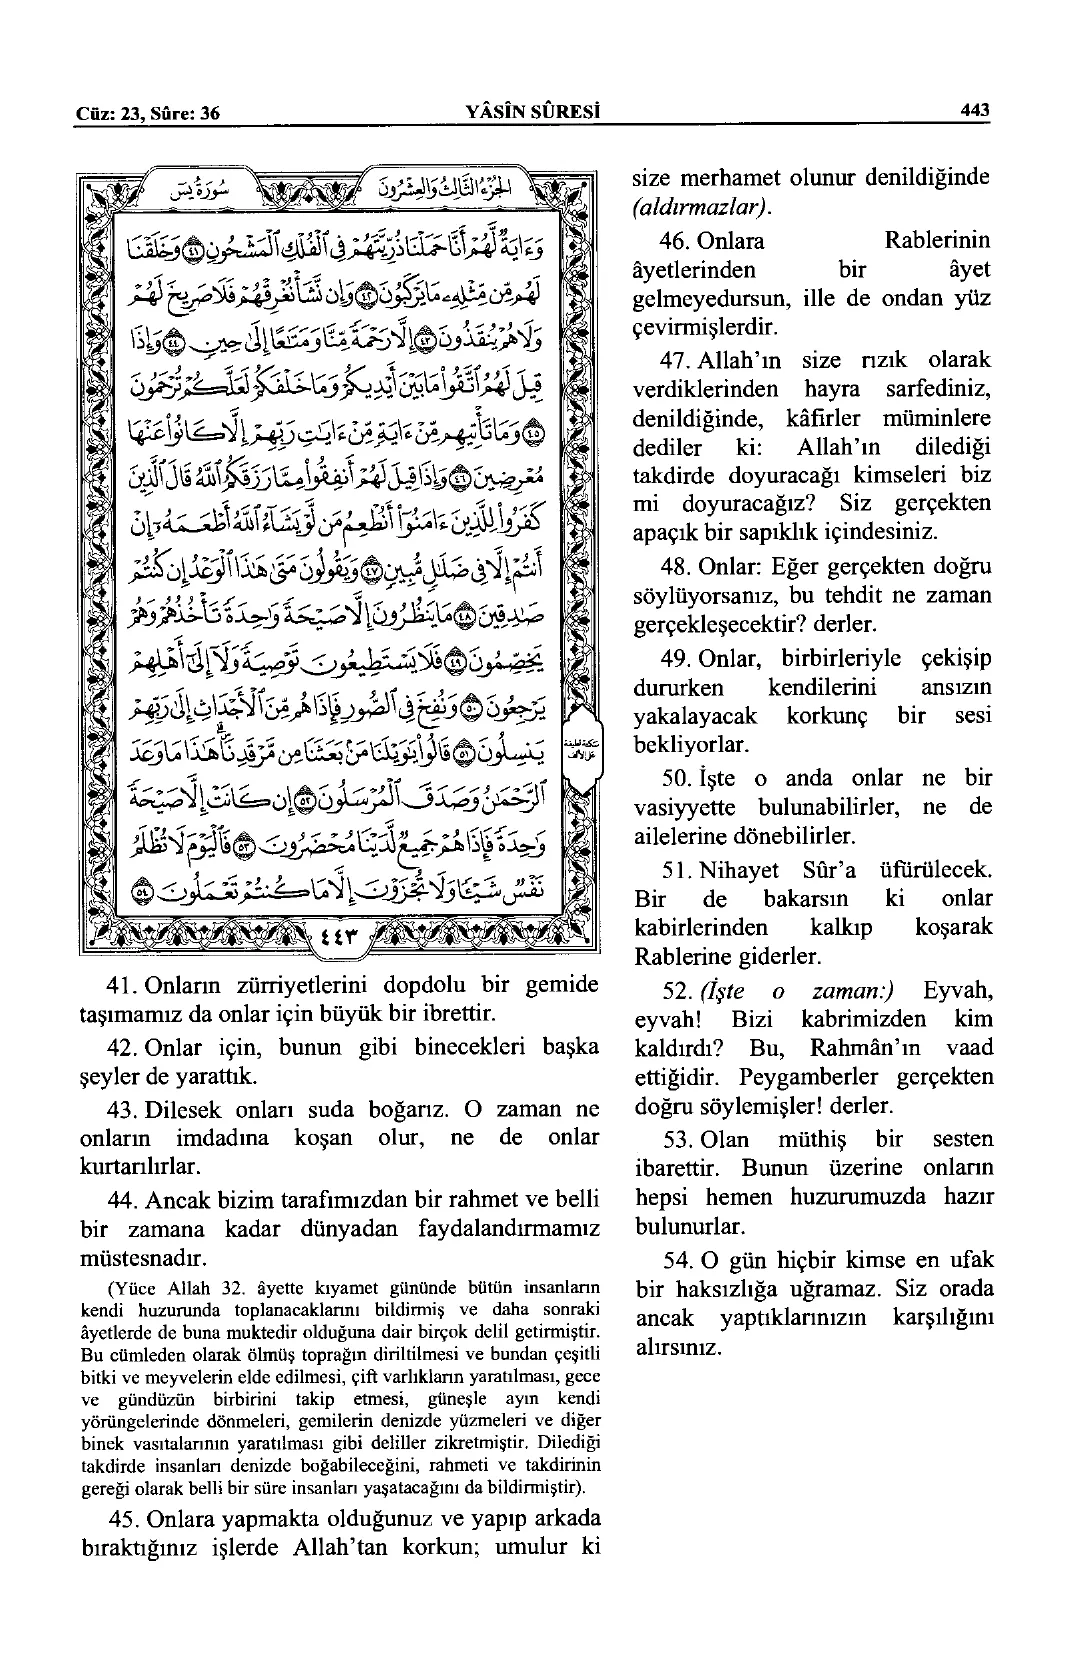 Cüz: 23, Sûre: 36 YÂSÎN SÛRESİ 443
سُورَةُ يٰسٓ الجُزْءُ الثَّالِثُ وَالْعِشْرُونَ
وَءَايَةٌ لَّهُمْ أَنَّا حَمَلْنَا ذُرِّيَّتَهُمْ فِي ٱلْفُلْكِ ٱلْمَشْحُونِ ٤١ وَخَلَقْنَا
لَهُم مِّن مِّثْلِهِۦ مَا يَرْكَبُونَ ٤٢ وَإِن نَّشَأْ نُغْرِقْهُمْ فَلَا صَرِيخَ لَهُمْ
وَلَا هُمْ يُنقَذُونَ ٤٣ إِلَّا رَحْمَةً مِّنَّا وَمَتَٰعًا إِلَىٰ حِينٍ ٤٤ وَإِذَا
قِيلَ لَهُمُ ٱتَّقُوا۟ مَا بَيْنَ أَيْدِيكُمْ وَمَا خَلْفَكُمْ لَعَلَّكُمْ تُرْحَمُونَ
٤٥ وَمَا تَأْتِيهِم مِّنْ ءَايَةٍ مِّنْ ءَايَٰتِ رَبِّهِمْ إِلَّا كَانُوا۟ عَنْهَا
مُعْرِضِينَ ٤٦ وَإِذَا قِيلَ لَهُمْ أَنفِقُوا۟ مِمَّا رَزَقَكُمُ ٱللَّهُ قَالَ ٱلَّذِينَ
كَفَرُوا۟ لِلَّذِينَ ءَامَنُوٓا۟ أَنُطْعِمُ مَن لَّوْ يَشَآءُ ٱللَّهُ أَطْعَمَهُۥٓ إِنْ
أَنتُمْ إِلَّا فِي ضَلَٰلٍ مُّبِينٍ ٤٧ وَيَقُولُونَ مَتَىٰ هَٰذَا ٱلْوَعْدُ إِن كُنتُمْ
صَٰدِقِينَ ٤٨ مَا يَنظُرُونَ إِلَّا صَيْحَةً وَٰحِدَةً تَأْخُذُهُمْ وَهُمْ
يَخِصِّمُونَ ٤٩ فَلَا يَسْتَطِيعُونَ تَوْصِيَةً وَلَآ إِلَىٰٓ أَهْلِهِمْ
يَرْجِعُونَ ٥٠ وَنُفِخَ فِي ٱلصُّورِ فَإِذَا هُم مِّنَ ٱلْأَجْدَاثِ إِلَىٰ رَبِّهِمْ
يَنسِلُونَ ٥١ قَالُوا۟ يَٰوَيْلَنَا مَنۢ بَعَثَنَا مِن مَّرْقَدِنَا هَٰذَا مَا وَعَدَ
ٱلرَّحْمَٰنُ وَصَدَقَ ٱلْمُرْسَلُونَ ٥٢ إِن كَانَتْ إِلَّا صَيْحَةً
وَٰحِدَةً فَإِذَا هُمْ جَمِيعٌ لَّدَيْنَا مُحْضَرُونَ ٥٣ فَٱلْيَوْمَ لَا تُظْلَمُ
نَفْسٌ شَيْـًٔا وَلَا تُجْزَوْنَ إِلَّا مَا كُنتُمْ تَعْمَلُونَ ٥٤
٤٤٣
41. Onların zürriyetlerini dopdolu bir gemide
taşımamız da onlar için büyük bir ibrettir.
42. Onlar için, bunun gibi binecekleri başka
şeyler de yarattık.
43. Dilesek onları suda boğarız. O zaman ne
onların imdadına koşan olur, ne de onlar
kurtarılırlar.
44. Ancak bizim tarafımızdan bir rahmet ve belli
bir zamana kadar dünyadan faydalandırmamız
müstesnadır.
(Yüce Allah 32. âyette kıyamet gününde bütün insanların
kendi huzurunda toplanacaklarını bildirmiş ve daha sonraki
âyetlerde de buna muktedir olduğuna dair birçok delil getirmiştir.
Bu cümleden olarak ölmüş toprağın diriltilmesi ve bundan çeşitli
bitki ve meyvelerin elde edilmesi, çift varlıkların yaratılması, gece
ve gündüzün birbirini takip etmesi, güneşle ayın kendi
yörüngelerinde dönmeleri, gemilerin denizde yüzmeleri ve diğer
binek vasıtalarının yaratılması gibi deliller zikretmiştir. Dilediği
takdirde insanları denizde boğabileceğini, rahmeti ve takdirinin
gereği olarak belli bir süre insanları yaşatacağını da bildirmiştir).
45. Onlara yapmakta olduğunuz ve yapıp arkada
bıraktığınız işlerde Allah’tan korkun; umulur ki
size merhamet olunur denildiğinde
(aldırmazlar).
46. Onlara Rablerinin
âyetlerinden bir âyet
gelmeyedursun, ille de ondan yüz
çevirmişlerdir.
47. Allah’ın size rızık olarak
verdiklerinden hayra sarfediniz,
denildiğinde, kâfirler müminlere
dediler ki: Allah’ın dilediği
takdirde doyuracağı kimseleri biz
mi doyuracağız? Siz gerçekten
apaçık bir sapıklık içindesiniz.
48. Onlar: Eğer gerçekten doğru
söylüyorsanız, bu tehdit ne zaman
gerçekleşecektir? derler.
49. Onlar, birbirleriyle çekişip
dururken kendilerini ansızın
yakalayacak korkunç bir sesi
bekliyorlar.
50. İşte o anda onlar ne bir
vasiyyette bulunabilirler, ne de
ailelerine dönebilirler.
51. Nihayet Sûr’a üfürülecek.
Bir de bakarsın ki onlar
kabirlerinden kalkıp koşarak
Rablerine giderler.
52. (İşte o zaman:) Eyvah,
eyvah! Bizi kabrimizden kim
kaldırdı? Bu, Rahmân’ın vaad
ettiğidir. Peygamberler gerçekten
doğru söylemişler! derler.
53. Olan müthiş bir sesten
ibarettir. Bunun üzerine onların
hepsi hemen huzurumuzda hazır
bulunurlar.
54. O gün hiçbir kimse en ufak
bir haksızlığa uğramaz. Siz orada
ancak yaptıklarınızın karşılığını
alırsınız.